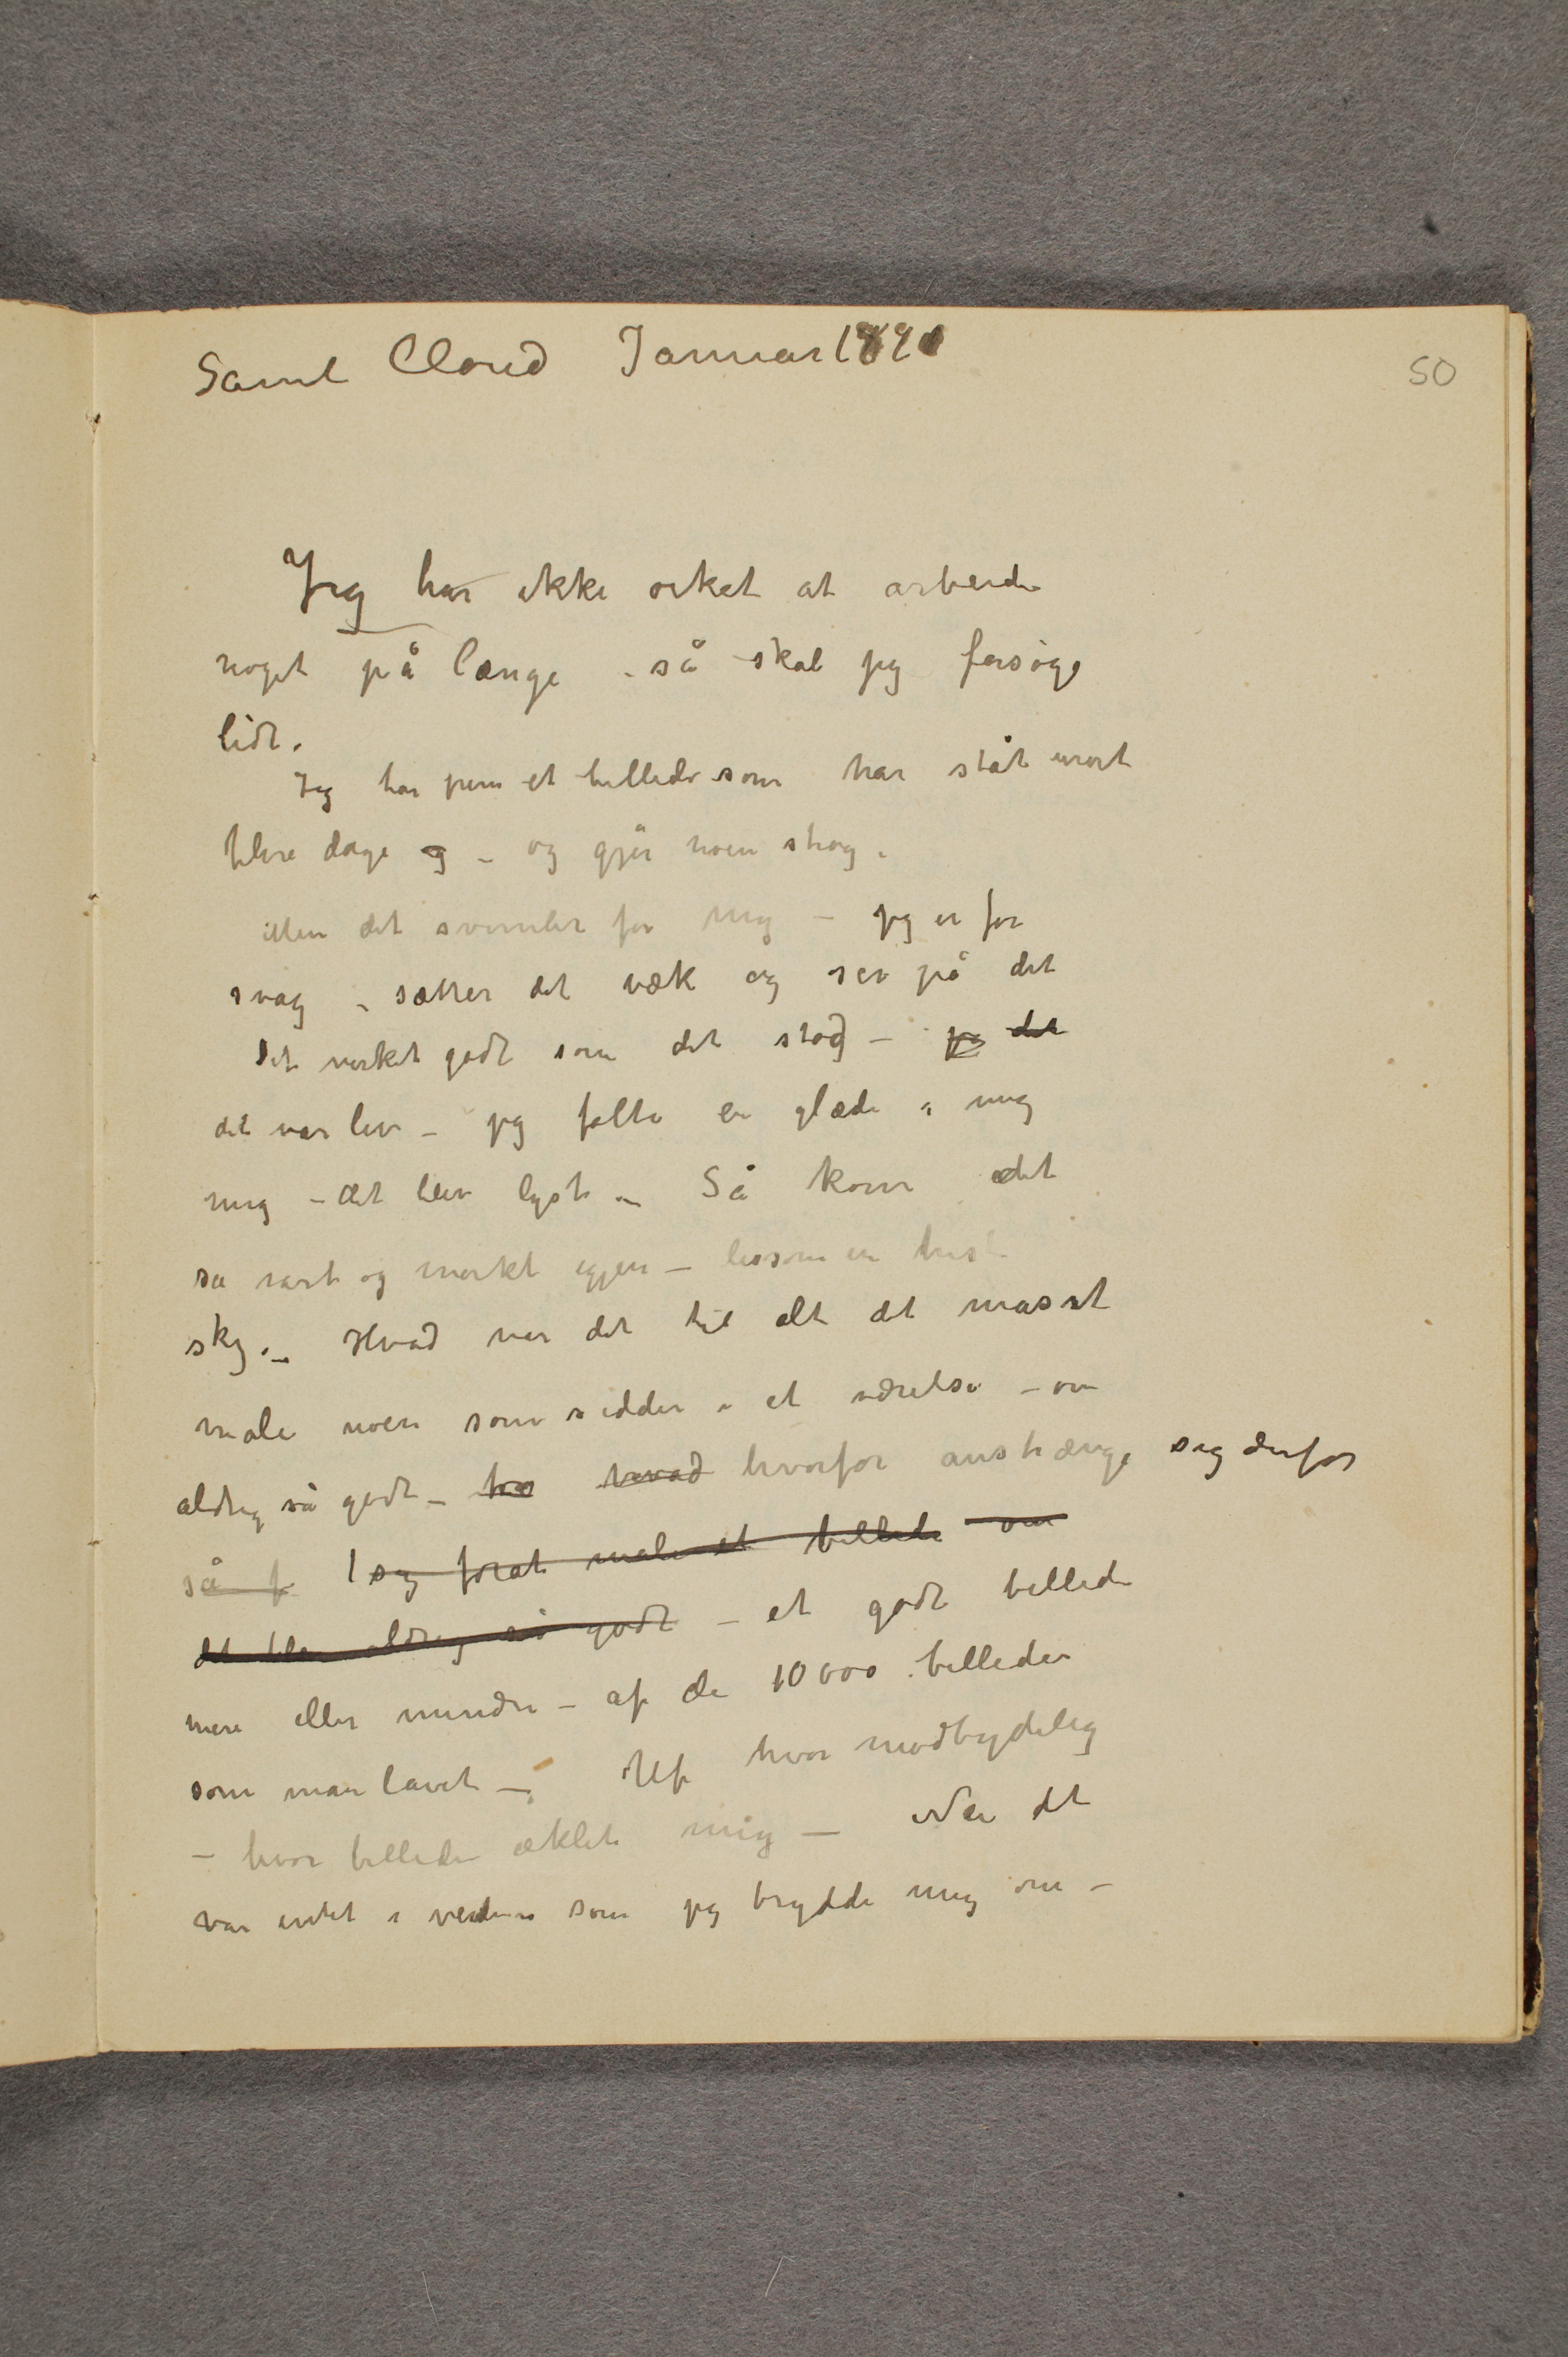 Saint Cloud Januar 1890
50
Jeg har ikke orket at arbeide
noget på længe – så skal jeg forsøge
lidt.
Jeg har frem et billede som har ståt urørt
flere dage og – og gjør noen strøg.
Men det svimler for mig – jeg er for
svag – sætter det væk og ser på det
Det virket godt som det stod – jeg det
det var liv – jeg følte en glæde i mig
mig – det blev lyst – Så kom det
så sart og mørkt igjen – lissom en trist
sky. – Hvad var det til alt det masset
male noen som sidder i et værelse – om
aldrig så godt – hva hvad hvorfor anstrænge sig derfor
så f sig forat male et billede om
det blev aldrig så godt – et godt billede
mere eller mindre – af de 10000 billeder
som man lavet – Uf hvor modbydelig
– hvor billedet æklet mig – Nei det
var intet i verden som jeg brydde mig om –